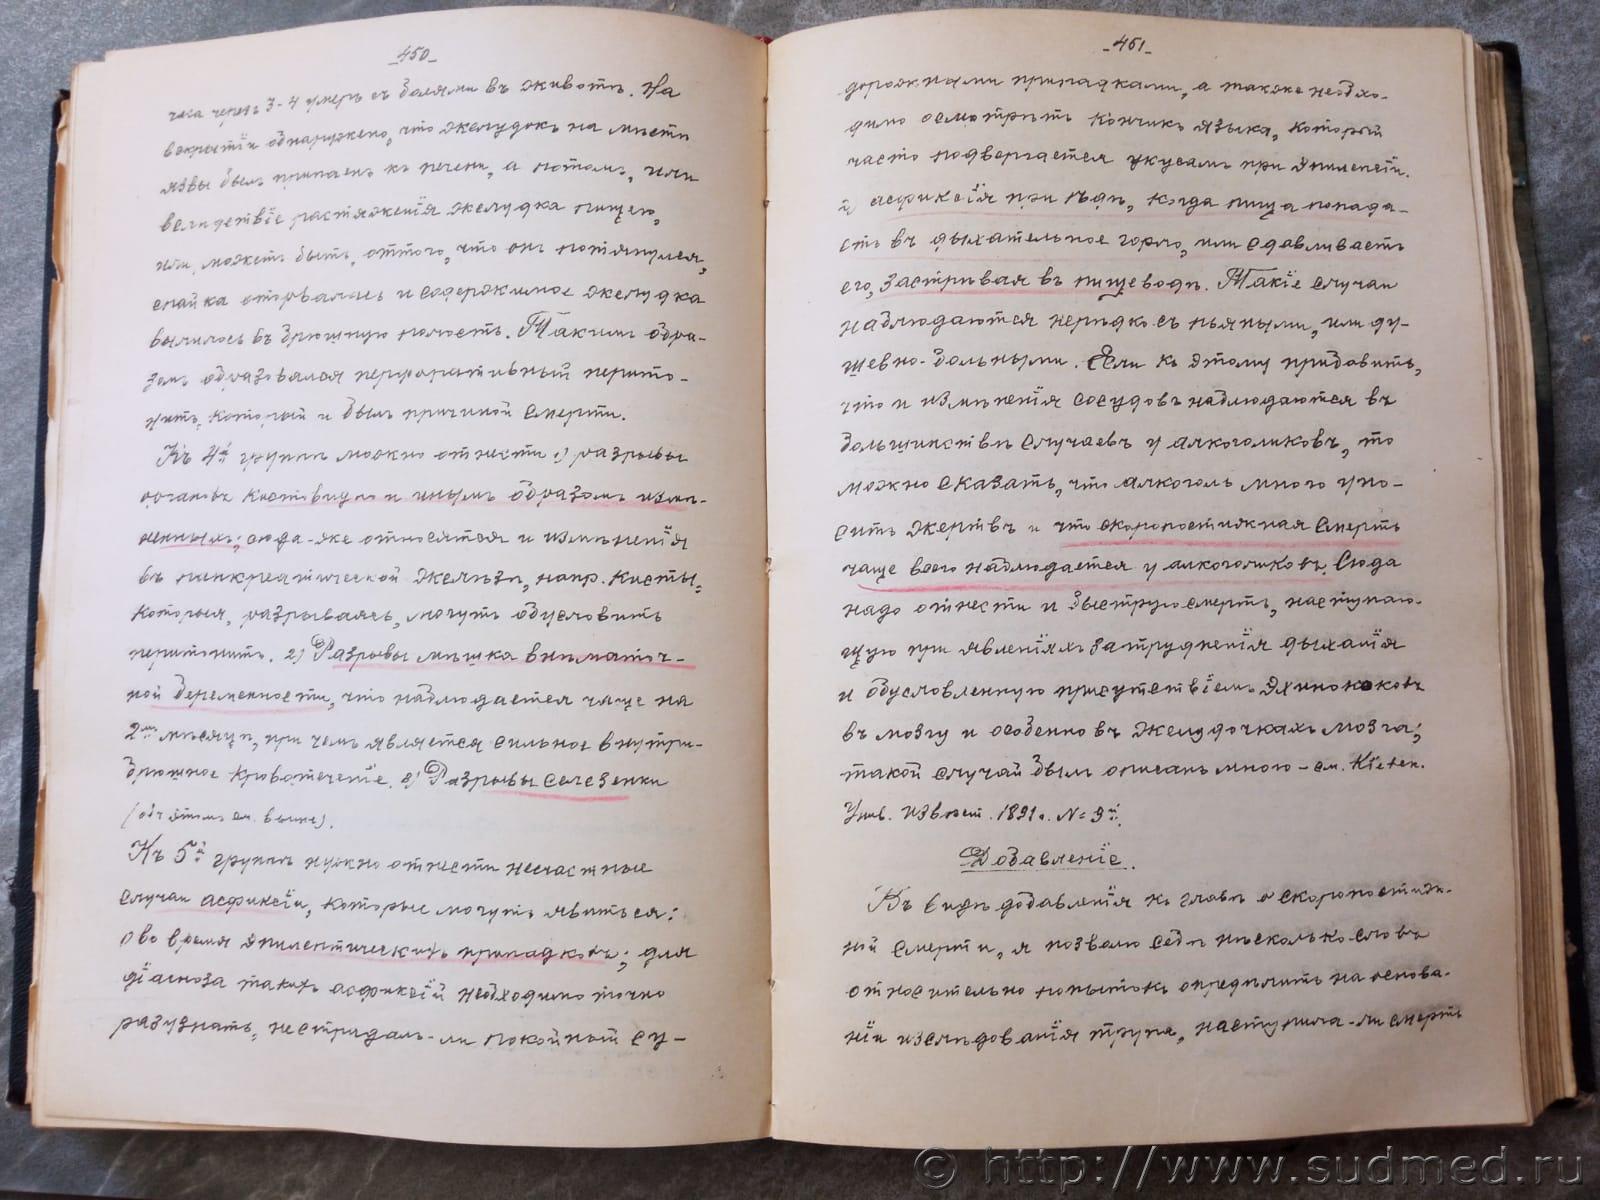 -450-
часа черезъ 3-4 умеръ съ болями въ животѣ. На
вскрытіи обнаружено, что желудокъ на мѣстѣ
язвы былъ припаенъ къ печени, а потомъ, или
вслѣдствіе растяженія желудка пищею,
или, можетъ быть, оттого, что онъ потянулся,
спайка оторвалась и содержимое желудка
вылилось въ брюшную полость. Такимъ обра-
зомъ образовался перфоративный перито-
нитъ, который и былъ причиной смерти.
Къ 4й группѣ можно отнести 1) разрывы
органовъ кистовидно и инымъ образомъ измѣ-
ненныхъ; сюда-же относятся и измѣненія
въ панкреатической железѣ, напр. кисты,
которыя, разрываясь, могутъ обусловить
перитонитъ. 2) Разрывы мѣшка внѣматоч-
ной беременности, что наблюдается чаще на
2мъ мѣсяцѣ, при чемъ является сильное внутри-
брюшное кровотеченіе. 3) Разрывы селезенки
(объ этомъ см. выше).
Къ 5й группѣ нужно отнести несчастные
случаи асфиксіи, которые могутъ явиться:
1) во время эпилептическихъ припадковъ; для
діагноза такихъ асфиксій необходимо точно
разузнать, не страдалъ-ли покойный су-
-451-
дорожными припадками, а также необхо-
димо осмотрѣть кончикъ языка, который
часто подвергается укусамъ при эпилепсіи.
2) асфиксія при ѣдѣ, когда пища попада-
етъ въ дыхательное горло, или сдавливаетъ
его, застрѣвая въ пищеводѣ. Такіе случаи
наблюдаются нерѣдко съ пьяными, или ду-
шевно-больными. Если къ этому прибавить,
что и измѣненія сосудовъ наблюдаются въ
большинствѣ случаевъ у алкоголиковъ, то
можно сказать, что алкоголь много уно-
ситъ жертвъ и что скоропостижная смерть
чаще всего наблюдается у алкоголиковъ. Сюда
надо отнести и быструю смерть, наступаю-
щую при явленіяхъ затрудненія дыханія
и обусловленную присутствіемъ эхинококовъ
въ мозгу и особенно въ желудочкахъ мозга;
такой случай былъ описанъ мною - см. Кіевск.
Унив. извѣст. 1891г. №9й.
Добавленіе.
Въ видѣ добавленія къ главѣ о скоропостиж-
ной смерти, я позволю себѣ нѣсколько словъ
относительно попытокъ опредѣлить на основа-
ніи изслѣдованія трупа, наступила-ли смерть
© http://www.sudmed.ru